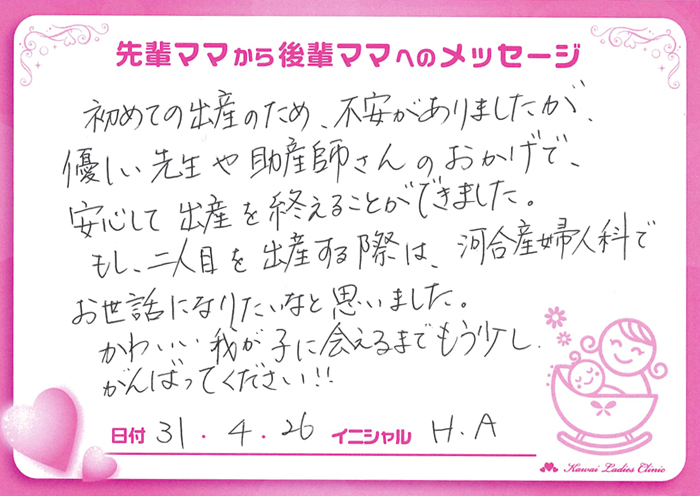 先輩ママから後輩ママへのメッセージ
初めての出産のため、不安がありましたが、
優しい先生や助産師さんのおかげで、
安心して出産を終えることができました。
もし、二人目を出産する際は、河合産婦人科で
お世話になりたいなと思いました。
かわいい我が子に会えるまでもう少し
がんばってください!!
日付 31・4・26 イニシャル H.A
Kawai Ladies Clinic